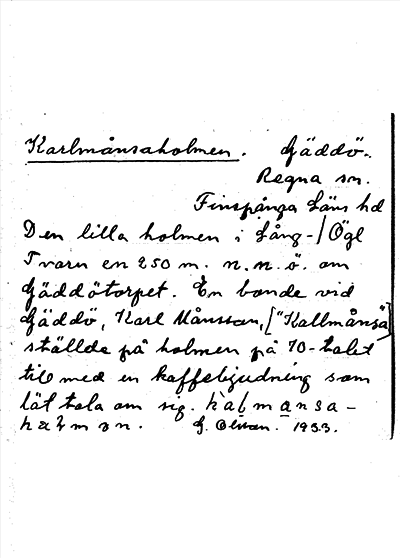 Karlmånsaholmen. Gäddö.
Regna sn.
Finspånga Läns hd
Den lilla holmen i Lång- / Ögl
Tvarn en 250 m. n.n.ö. om
Gäddötorpet. En bonde vid
Gäddö, Karl Månsson, ["Kallmånsa"]
ställde på holmen på 70-talet
till med en kaffebjudning som
lät tala om sig. kalmansa-
halman. G. Olsson. 1933.